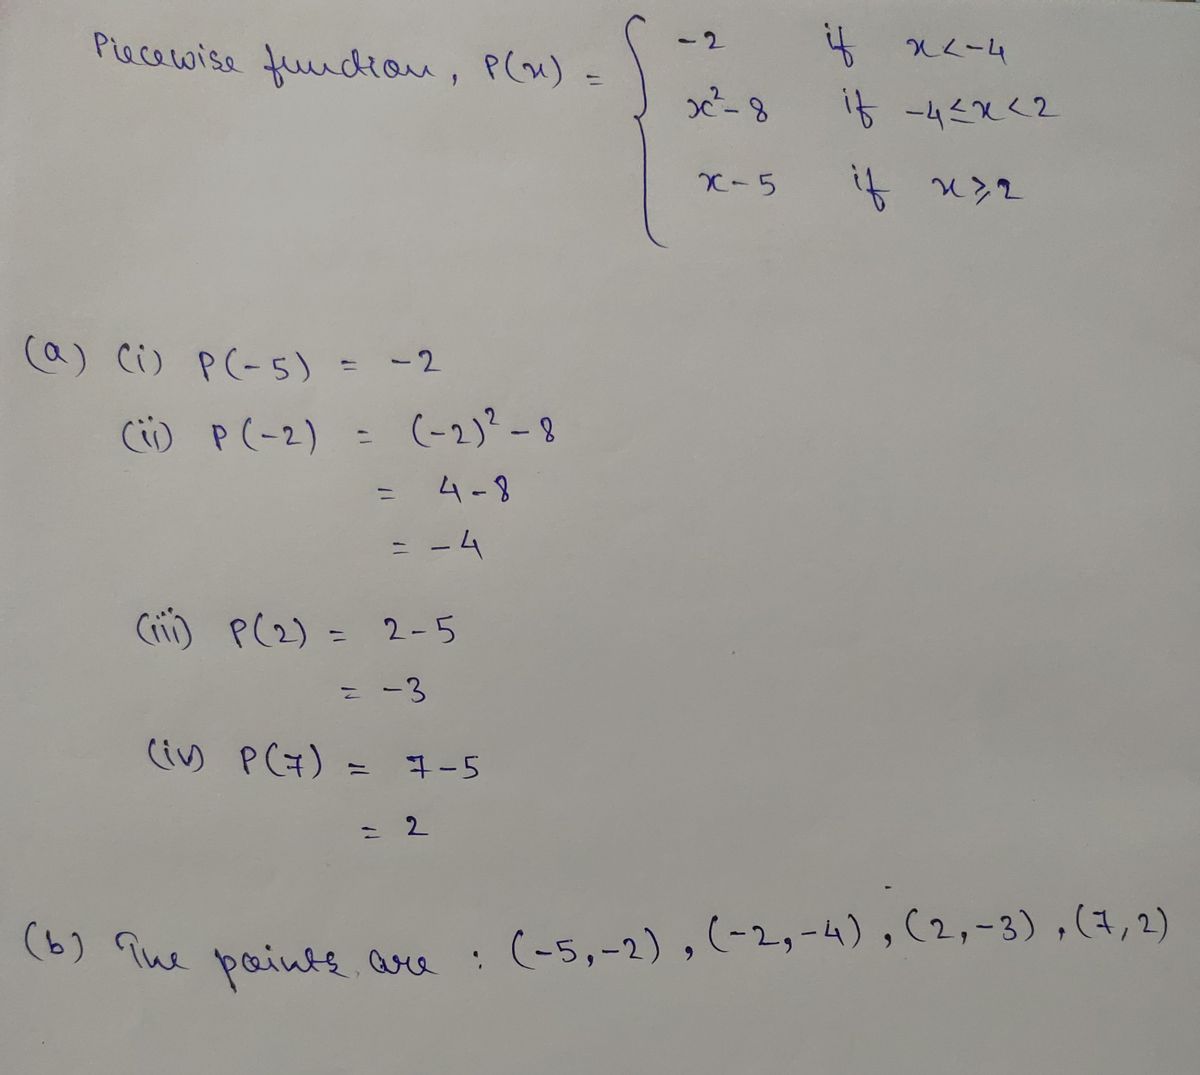 Piecewise function, P(x) = { -2 if x<-4
x²-8 if -4≤x<2
x-5 if x≥2
(a) (i) P(-5) = -2
(ii) P(-2) = (-2)²-8
= 4-8
= -4
(iii) P(2) = 2-5
= -3
(iv) P(7) = 7-5
= 2
(b) The points are : (-5,-2), (-2,-4), (2,-3), (7,2)